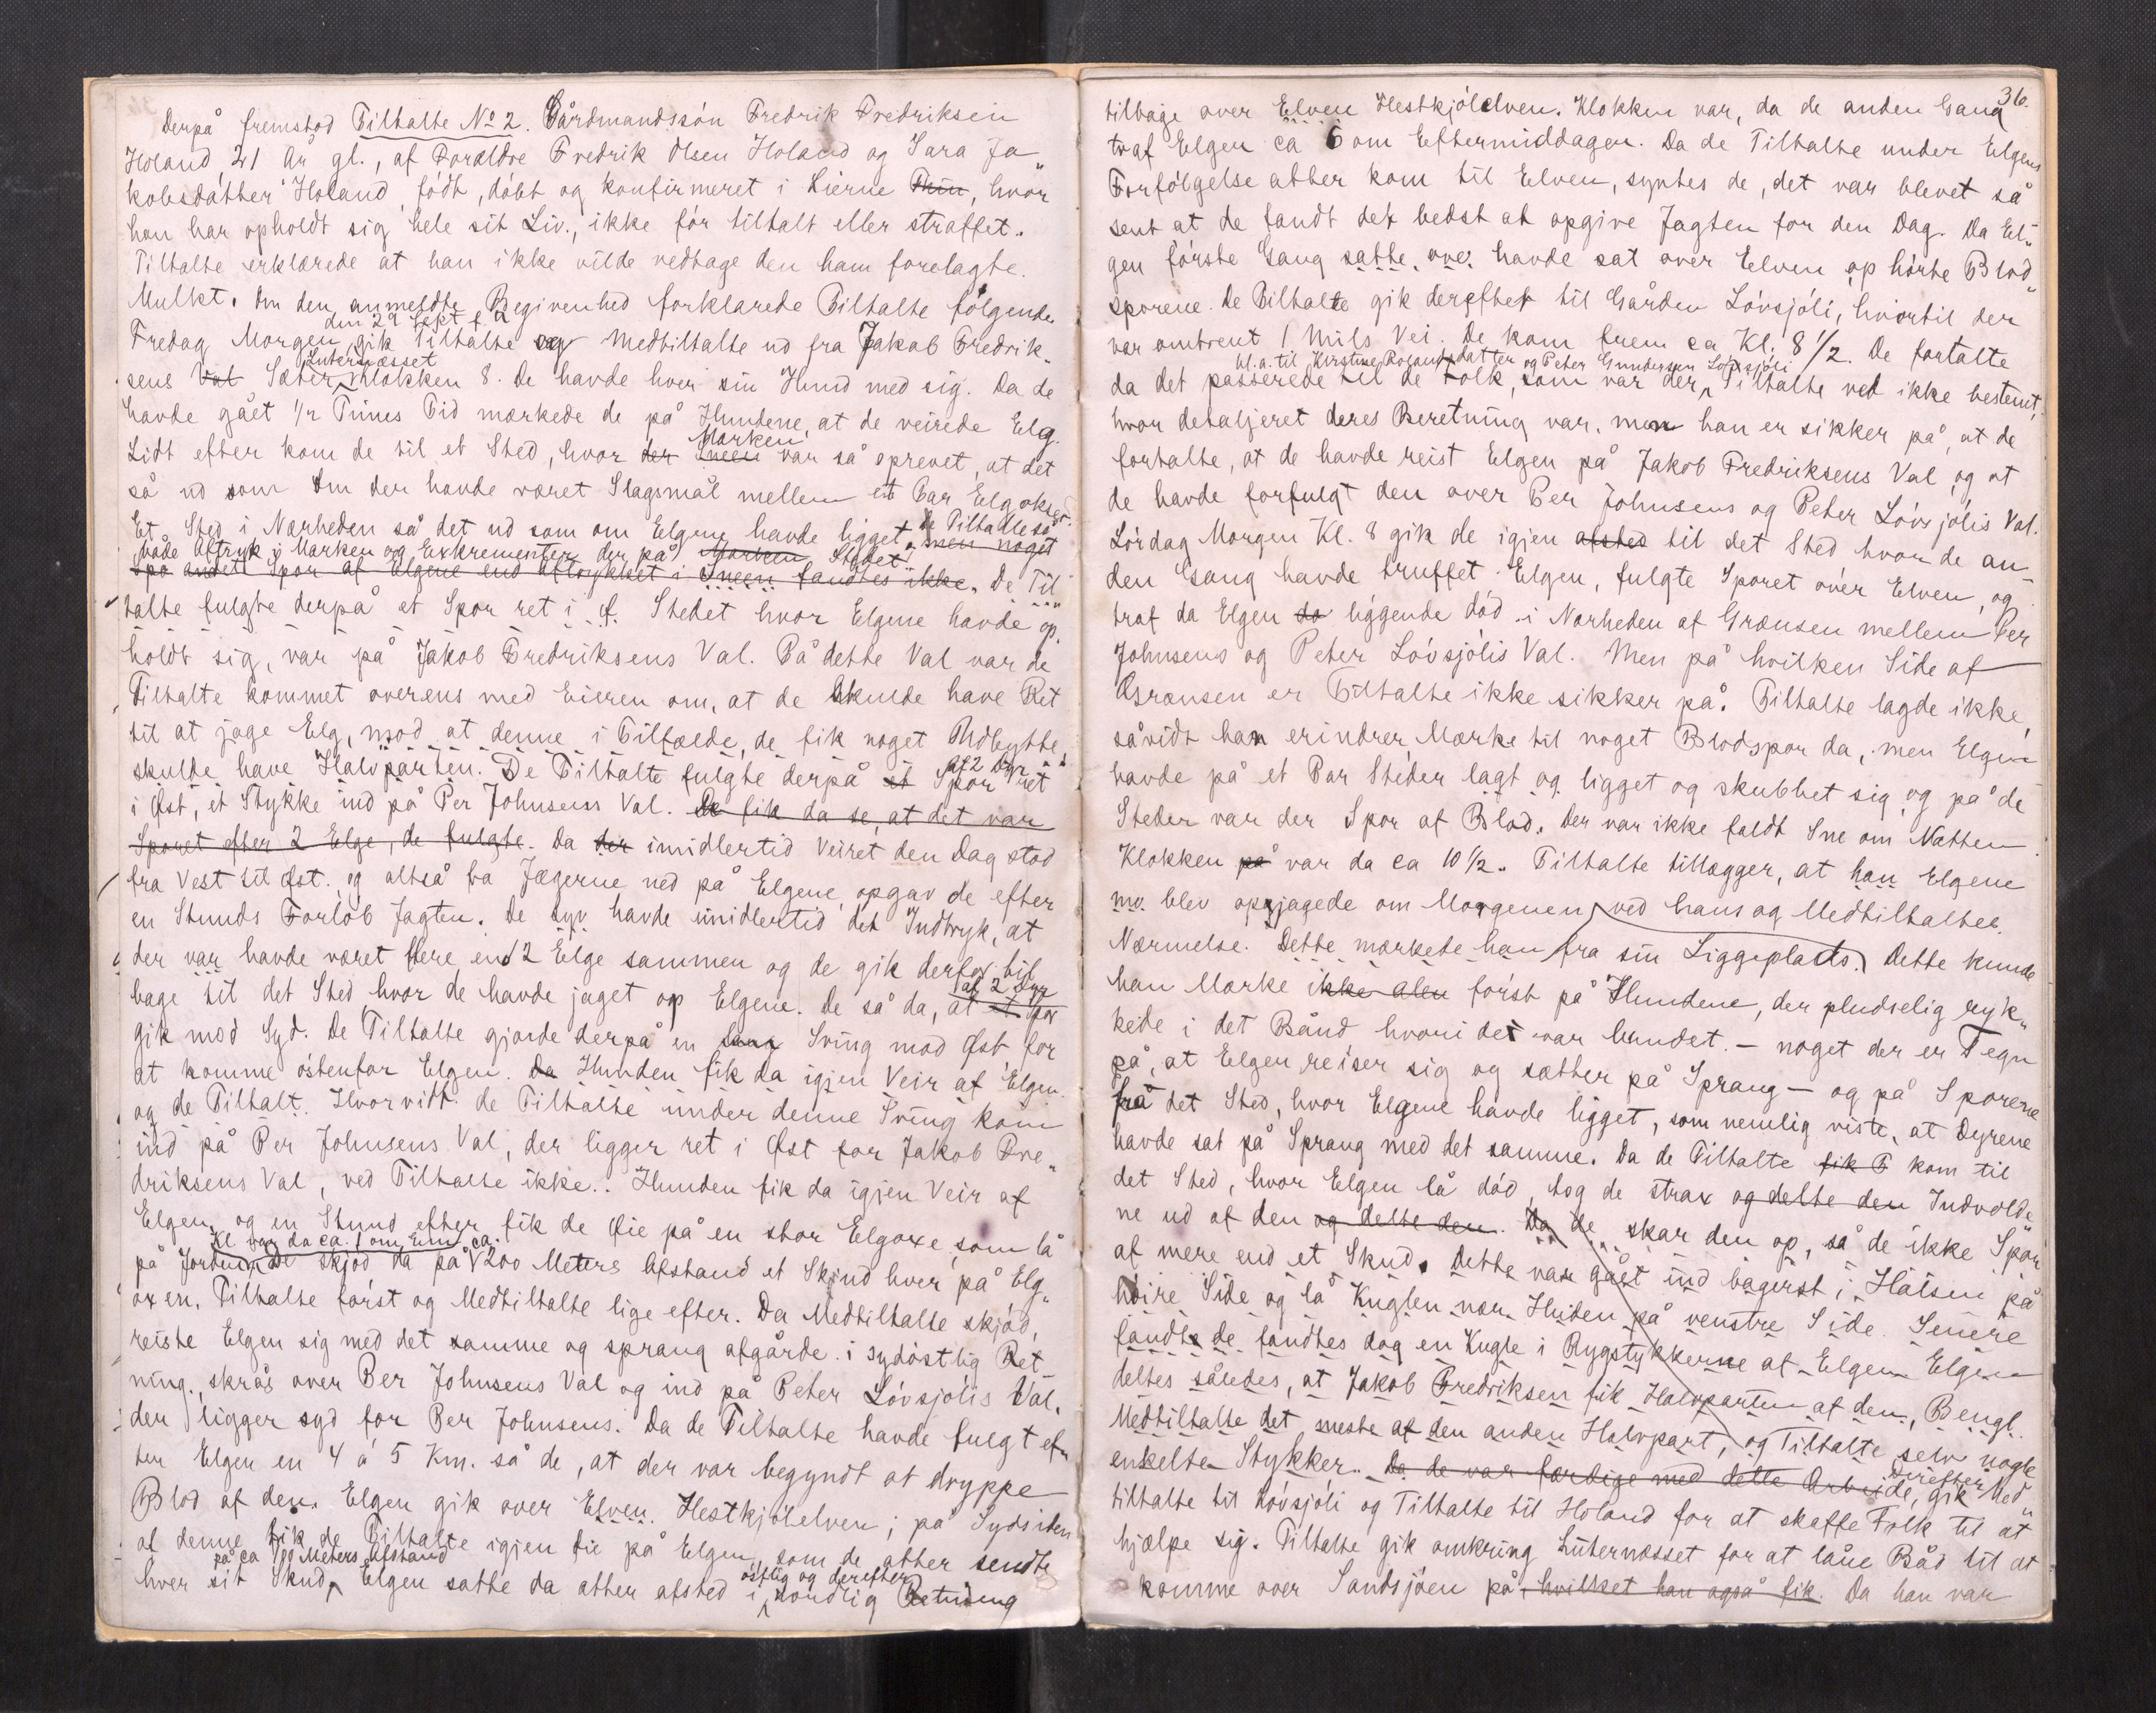 Derpå fremstod Tiltalte No 2. Gårdmandssön Fredrik Fredriksen
Holand, 21 år gl., af Forældre Fredrik Olsen Holand og Sara Ja„
kobsdatter Holand, födt, döbt og konfirmeret i Lierne, hvor
han har opholdt sig hele sit Liv, ikke för tiltalt eller straffet.
Tiltalte erklærede at han ikke vilde vedtage den ham forelagte
Mulkt. Om den anmeldte Begivenhed forklarede Tiltalte fölgende
den 29 Sept f. A
Fredag Morgen gik Tiltalte og Medtiltalte ud fra Jakob Fredrik„
Luternæsset
sens Val Sæter Klokken 8. De havde hver sin Hund med sig. Da de
havde gået 1/2 Times Tid mærkede de på Hundene, at de veirede Elg.
Marken
Lidt efter kom de til et Sted, hvor der Sneen var så oprevet, at det
så ud som om der havde været Slagsmål mellem et Par Elgokser.
de Tiltalte så
Et Sted i Nærheden så det ud som om Elgene havde ligget, men noget
både Aftryk i Marken og Exkrementer der på Marken Stedet
Spo andet Spor af Elgene end Aftrykket i Sneen fandtes ikke. De Til„
talte fulgte derpå et Spor ret i Ø. Stedet hvor Elgene havde op„
holdt sig, var på Jakob Fredriksens Val. På dette Val var de
Tiltalte kommet overens med Eieren om, at de skulde have Ret
til at jage Elg, mod at denne i Tilfælde, de fik noget Udbytte,
skulde have Halvparten. De Tiltalte fulgte derpå et Spor af 2 Dyr ret
i Øst, et Stykke ind på Per Johnsens Val. De fik da se, at det var
Sporet efter 2 Elge, de fulgte. Da der imidlertid Veiret den Dag stod
fra Vest til Øst, og altså fra Jægerne ned på Elgene, opgav de efter
en Stunds Forlöb Jagten. De syv havde imidlertid det Indtryk, at
der var havde været flere end 2 Elge sammen og de gik derfor til„
bage til det Sted hvor de havde jaget op Elgene. De så da, at et Spor af 2 Dyr
gik mod Syd. De Tiltalte gjorde derpå en Sving mod Øst for
at komme östenfor Elgen. Da Hunden fik da igjen Veir af Elgen
og de Tiltalt. Hvorvidt de Tiltalte under denne Sving kom
ind på Per Johnsens Val, der ligger ret i Øst for Jakob Fre„
driksens Val, ved Tiltalte ikke. Hunden fik da igjen Veir af
Elgen, og en Stund efter fik de Øie på en stor Elgoxe, som lå
Kl. var da ca. 1 om Em. ca.
på Jorden. De skjöd da på 200 Meters Afstand et Skjud hver på Elg„
oxen, Tiltalte först og Medtiltalte lige efter. Da Medtiltalte skjöd,
reiste Elgen sig med det samme og sprang afgårde i sydöstlig Ret„
ning, skrås over Per Johnsens Val og ind på Peter Lövsjölis Val,
der ligger syd for Per Johnsens. Da de Tiltalte havde fulgt ef„
ter Elgen en 4 á 5 Km. så de, at der var begyndt at dryppe
Blod af den. Elgen gik over Elven Hestkjölelven; på Sydsiden
af denne fik de Tiltalte igjen Øie på Elgen, som de atter sendte
på ca 100 Meters Afstand
hver sit Skud. Elgen satte da atter afsted i östlig og derefter nordlig Retning
36.
tilbage over Elven Hestkjölelven. Klokken var, da de anden Gang
traf Elgen ca 6 om Eftermiddagen. Da de Tiltalte under Elgens
Forfölgelse atter kom til Elven, syntes de, det var blevet så
sent at de fandt det bedst at opgive Jagten for den Dag. Da El„
gen förste Gang satte over havde sat over Elven ophörte Blod„
sporene. De Tiltalte gik derefter til Gården Lövsjöli, hvortil der
var omtrent 1 Mils Vei. De kom frem ca Kl. 8 1/2. De fortalte
bl. a. til Kirstine Rolandsdatter og Peter Gundersen Lövsjöli
da det passerede til de Folk, som var der. Tiltalte ved ikke bestemt,
hvor detaljeret deres Beretning var, men han er sikker på, at de
fortalte, at de havde reist Elgen på Jakob Fredriksens Val og at
de havde forfulgt den over Per Johnsens og Peter Lövsjölis Val.
Lördag Morgen Kl. 8 gik de igjen afsted til det Sted hvor de an„
den Gang havde truffet Elgen, fulgte Sporet over Elven, og
traf da Elgen da liggende död i Nærheden af Grænsen mellem Per
Johnsens og Peter Lövsjölis Val. Men på hvilken Side af
Grænsen er Tiltalte ikke sikker på. Tiltalte lagde ikke,
såvidt han erindrer, Mærke til noget Blodspor da, men Elgen
havde på et Par Steder lagt og ligget og skubbet sig og på de
Steder var der Spor af Blod. Der var ikke faldt Sne om Natten.
Klokken på var da ca 10 1/2. Tiltalte tillægger, at han Elgene
mo. blev opjagede om Morgenen ved hans og Medtiltaltes
Nærmelse. Dette mærkede han fra sin Liggeplads. Dette kunde
han Mærke ikke alen först på Hundene, der pludselig ryk„
kede i det Bånd hvori det var bundet. — noget der er Tegn
på, at Elgen reiser sig og sætter på Sprang — og på Sporene
fra det Sted, hvor Elgene havde ligget, som nemlig viste, at Dyrene
havde sat på Sprang med det samme. Da de Tiltalte fik T kom til
det Sted, hvor Elgen lå död, tog de strax og delte den Indvolde„
ne ud af den og delte den. Da de skar den op, så de ikke Spor
af mere end et Skud. Dette var gået ind bagerst i Halsen på
höire Side og lå Kuglen nær Huden på venstre Side. Senere
fandtes de fandtes dog en Kugle i Rygstykkerne af Elgen. Elgen
deltes således, at Jakob Fredriksen fik Halvparten af den, Bengt
Medtiltalte det meste af den anden Halvpart, og Tiltalte selv nogle
enkelte Stykker. Da de var færdige med dette Arbeide, Derefter gik Med„
tiltalte til Lövsjöli og Tiltalte til Holand for at skaffe Folk til at
hjælpe sig. Tiltalte gik omkring Luternæsset for at låne Båd til at
komme over Sandsjöen på, hvilket han også fik. Da han var